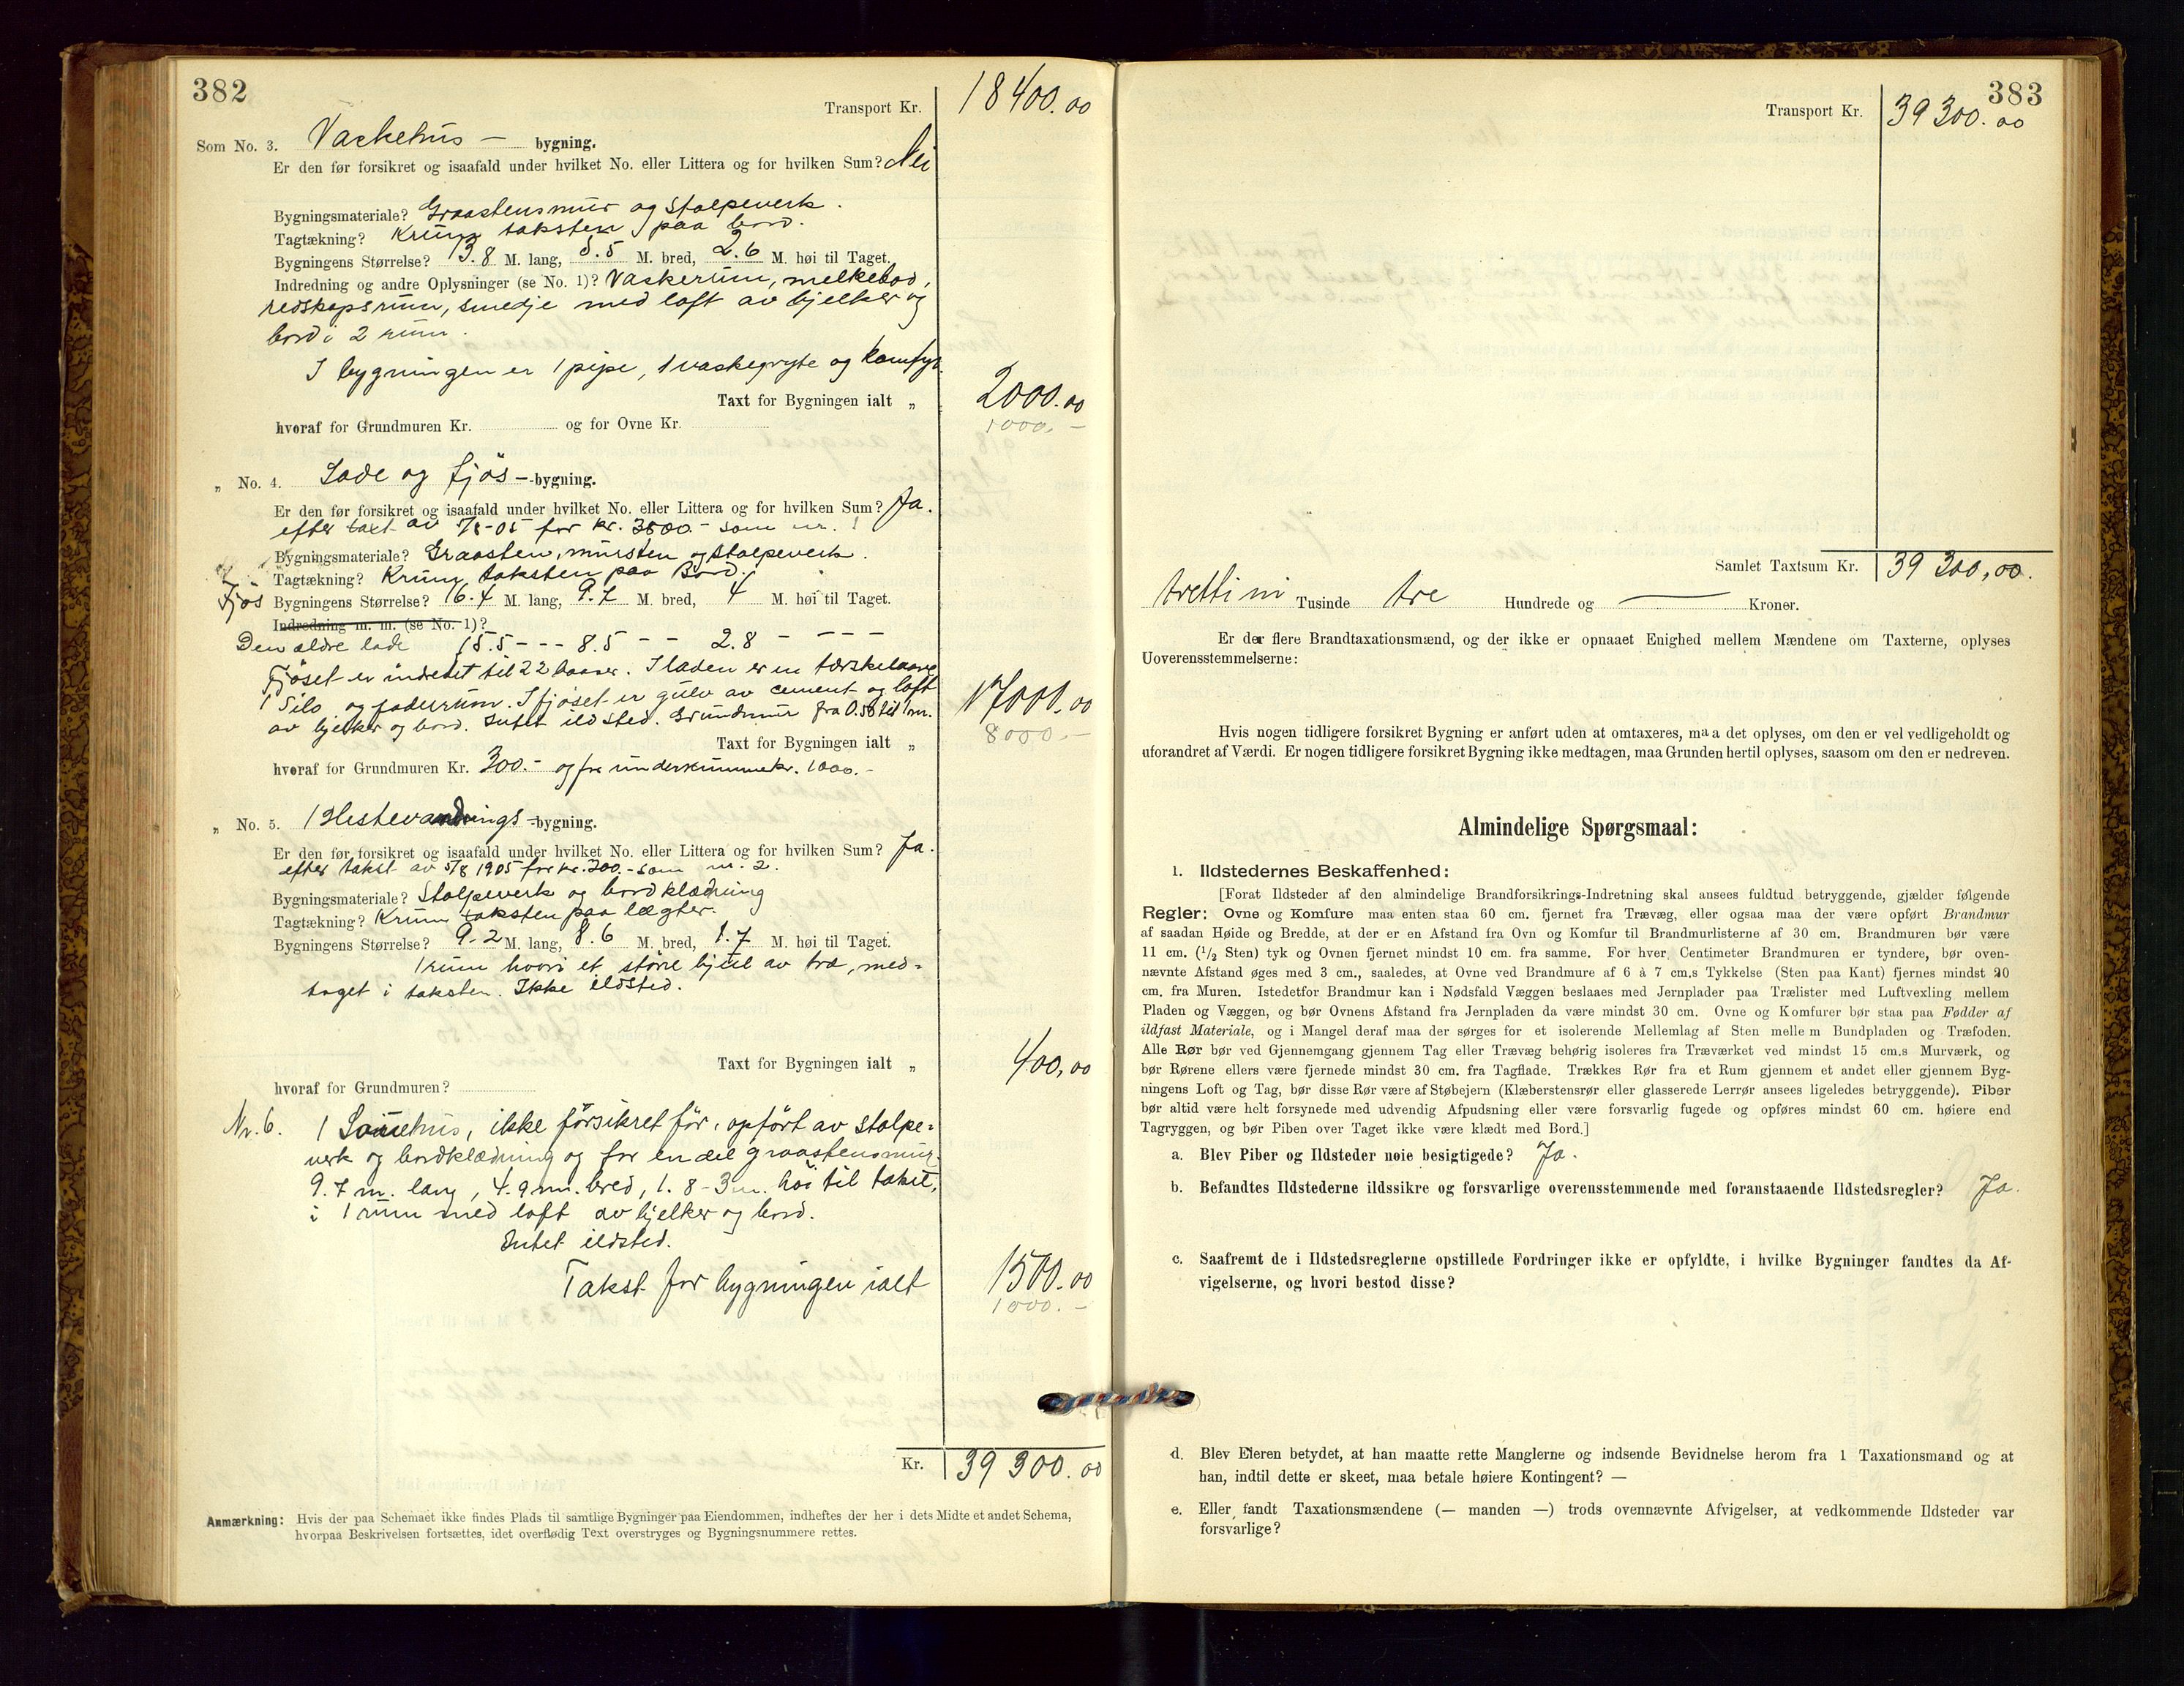 382
Transport Kr. 18 400.00
Som No. 3. Vaskehus — bygning.
Er den før forsikret og isaafald under hvilket No. eller Littera og for hvilken Sum? Nei
Bygningsmateriale? Graastensmur og stolpeverk.
Tagtækning? Krum taksten paa bord.
Bygningens Størrelse? 13.8 M. lang, 5.5 M. bred, 2.6 M. høi til Taget.
Indredning og andre Oplysninger (se No. 1)? Vaskerum, melkebod,
redskapsrum, smedje med loft av bjelker og
bord i 2 rum.
I bygningen er 1 pipe, 1 vaskegryte og komfyr.
Taxt for Bygningen ialt „ 2000.00
hvoraf for Grundmuren Kr. og for Ovne Kr. 1000. –
„ No. 4. Lade og fjös – bygning.
Er den før forsikret og isaafald under hvilket No. eller Littera og for hvilken Sum? Ja.
efter taxt av 5/8-05 for kr. 3800.- som nr. 1
Bygningsmateriale? Graasten, mursten og stolpeverk.
Tagtækning? Krum taksten paa Bord.
Fjös Bygningens Størrelse? 16.4 M. lang, 9.7 M. bred, 4 M. høi til Taget.
Indredning m. m. (se No. 1)?
Den ældre lade 15.5 - - - 8.5 - - 2.8 - - - -
Fjöset er indredet til 22 baaser. I laden er en tærskelaave
1 Silo og foderrum. I fjöset er gulv av cement og loft
av bjelker og bord. Intet ildsted. Grundmur fra 0.50 til 1 m. 17000.00
Taxt for Bygningen ialt „ 8000.–
hvoraf for Grundmuren Kr. 300.- og for underrummet kr. 1000.-
„ No. 5. 1 Hestevandrings – bygning.
Er den før forsikret og isaafald under hvilket No. eller Littera og for hvilken Sum? Ja.
efter takst av 5/8 1905 for kr. 200.- som nr. 2.
Bygningsmateriale? Stolpeverk og bordklædning
Tagtækning? Krum taksten paa lægter.
Bygningens Størrelse? 9.2 M. lang, 8.6 M. bred, 1.7 M. høi til Taget.
1 rum hvori et större hjul av træ, med-
taget i taksten. Ikke ildsted.
Taxt for Bygningen ialt „ 400,00
hvoraf for Grundmuren?
Nr. 6. 1 hus, ikke försikret för, opfört av stolpe-
verk og bordklædning og for en del graastensmur.
9.7 m. lang, 4.9 m. bred, 1.8-3 m. höi til taket,
i 1 rum med loft av bjelker og bord.
Intet ildsted.
Takst for bygningen ialt 1500.00
1000. –
Kr. 39 300.00
Anmærkning: Hvis der paa Schemaet ikke findes Plads til samtlige Bygninger paa Eiendommen, indheftes der her i dets Midte et andet Schema,
hvorpaa Beskrivelsen fortsættes, idet overflødig Text overstryges og Bygningsnummere rettes.
383
Transport Kr. 39 300.00
Samlet Taxtsum Kr. 39 300,00.
trettini Tusinde tre Hundrede og — Kroner.
Er der flere Brandtaxationsmænd, og der ikke er opnaaet Enighed mellem Mændene om Taxterne, oplyses
Uoverensstemmelserne:
Hvis nogen tidligere forsikret Bygning er anført uden at omtaxeres, maa det oplyses, om den er vel vedligeholdt og
uforandret af Værdi. Er nogen tidligere forsikret Bygning ikke medtagen, maa Grunden hertil oplyses, saasom om den er nedreven.
Almindelige Spørgsmaal:
1. Ildstedernes Beskaffenhed:
[Forat Ildsteder af den almindelige Brandforsikrings-Indretning skal ansees fuldtud betryggende, gjælder følgende
Regler: Ovne og Komfure maa enten staa 60 cm. fjernet fra Trævæg, eller ogsaa maa der være opført Brandmur
af saadan Høide og Bredde, at der er en Afstand fra Ovn og Komfur til Brandmurlisterne af 30 cm. Brandmuren bør være
11 cm. (1/2 Sten) tyk og Ovnen fjernet mindst 10 cm. fra samme. For hver Centimeter Brandmuren er tyndere, bør oven-
nævnte Afstand øges med 3 cm., saaledes, at Ovne ved Brandmure af 6 à 7 cm.s Tykkelse (Sten paa Kant) fjernes mindst 20
cm. fra Muren. Istedetfor Brandmur kan i Nødsfald Væggen beslaaes med Jernplader paa Trælister med Luftvexling mellem
Pladen og Væggen, og bør Ovnens Afstand fra Jernpladen da være mindst 30 cm. Ovne og Komfurer bør staa paa Fødder af
ildfast Materiale, og i Mangel deraf maa der sørges for et isolerende Mellemlag af Sten mellem Bundpladen og Træfoden.
Alle Rør bør ved Gjennemgang gjennem Tag eller Trævæg behørig isoleres fra Træværket ved mindst 15 cm.s Murværk, og
bør Rørene ellers være fjernede mindst 30 cm. fra Tagflade. Trækkes Rør fra et Rum gjennem et andet eller gjennem Byg-
ningens Loft og Tag, bør disse Rør være af Støbejern (Klæberstensrør eller glasserede Lerrør ansees ligeledes betryggende). Piber
bør altid være helt forsynede med udvendig Afpudsning eller være forsvarlig fugede og opføres mindst 60 cm. høiere end
Tagryggen, og bør Piben over Taget ikke være klædt med Bord.]
a. Blev Piber og Ildsteder nøie besigtigede? Ja.
b. Befandtes Ildstederne ildssikre og forsvarlige overensstemmende med foranstaaende Ildstedsregler? Ja.
c. Saafremt de i Ildstedsreglerne opstillede Fordringer ikke er opfyldte, i hvilke Bygninger fandtes da Af-
vigelserne, og hvori bestod disse?
d. Blev Eieren betydet, at han maatte rette Manglerne og indsende Bevidnelse herom fra 1 Taxationsmand og at
han, indtil dette er skeet, maa betale høiere Kontingent? —
e. Eller fandt Taxationsmændene (— manden —) trods ovennævnte Afvigelser, at vedkommende Ildsteder var
forsvarlige?